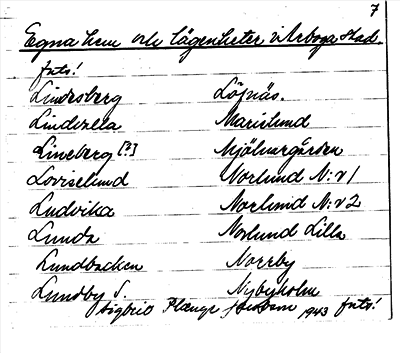 7
Egna hem och lägenheter i Arboga stad.
forts!
Lindesberg Löfnäs.
Lindvalla Marielund
Lineberg [?] Mjölnargården
Loviselund Norlund N:r 1
Ludvika Norlund N:r 2
Lunda Norlund Lilla
Lundbacken Norrby
Lundby S. Nybyholm
Sigbrit Plænge Jensson 1943 forts!